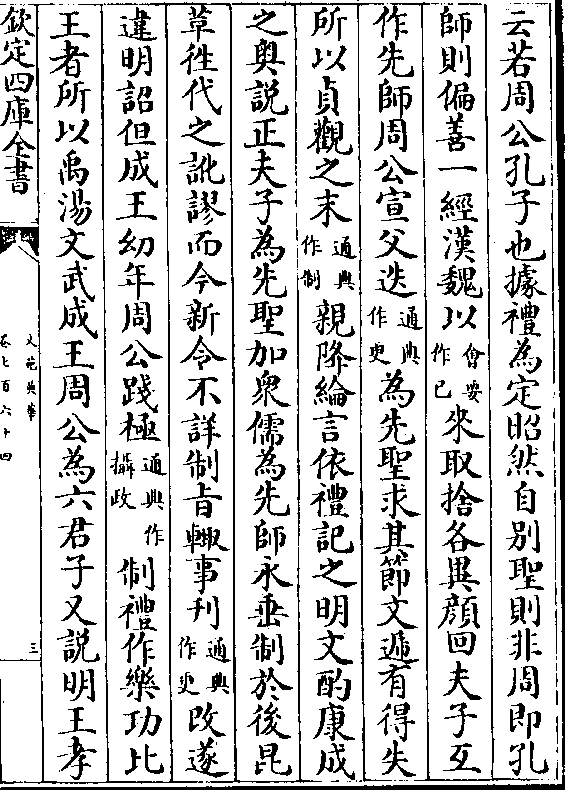 云若周公孔子也據禮為定昭然自别聖則非周即孔
師則偏善一經漢魏以會要作已來取捨各異顔回夫子互
作先師周公宣父迭通典作更為先聖求其節文遞有得失
所以貞觀之末通典作制親降綸言依禮記之明文酌康成
之奥說正夫子為先聖加衆儒為先師永垂制於後昆
革徃代之訛謬而今新令不詳制旨輙事刋通典作更改遂
違明詔但成王幼年周公踐極通典作攝政制禮作樂功比
王者所以禹湯文武成王周公為六君子又説明王孝
欽定四庫全書
文苑英華
卷七百六十四
三